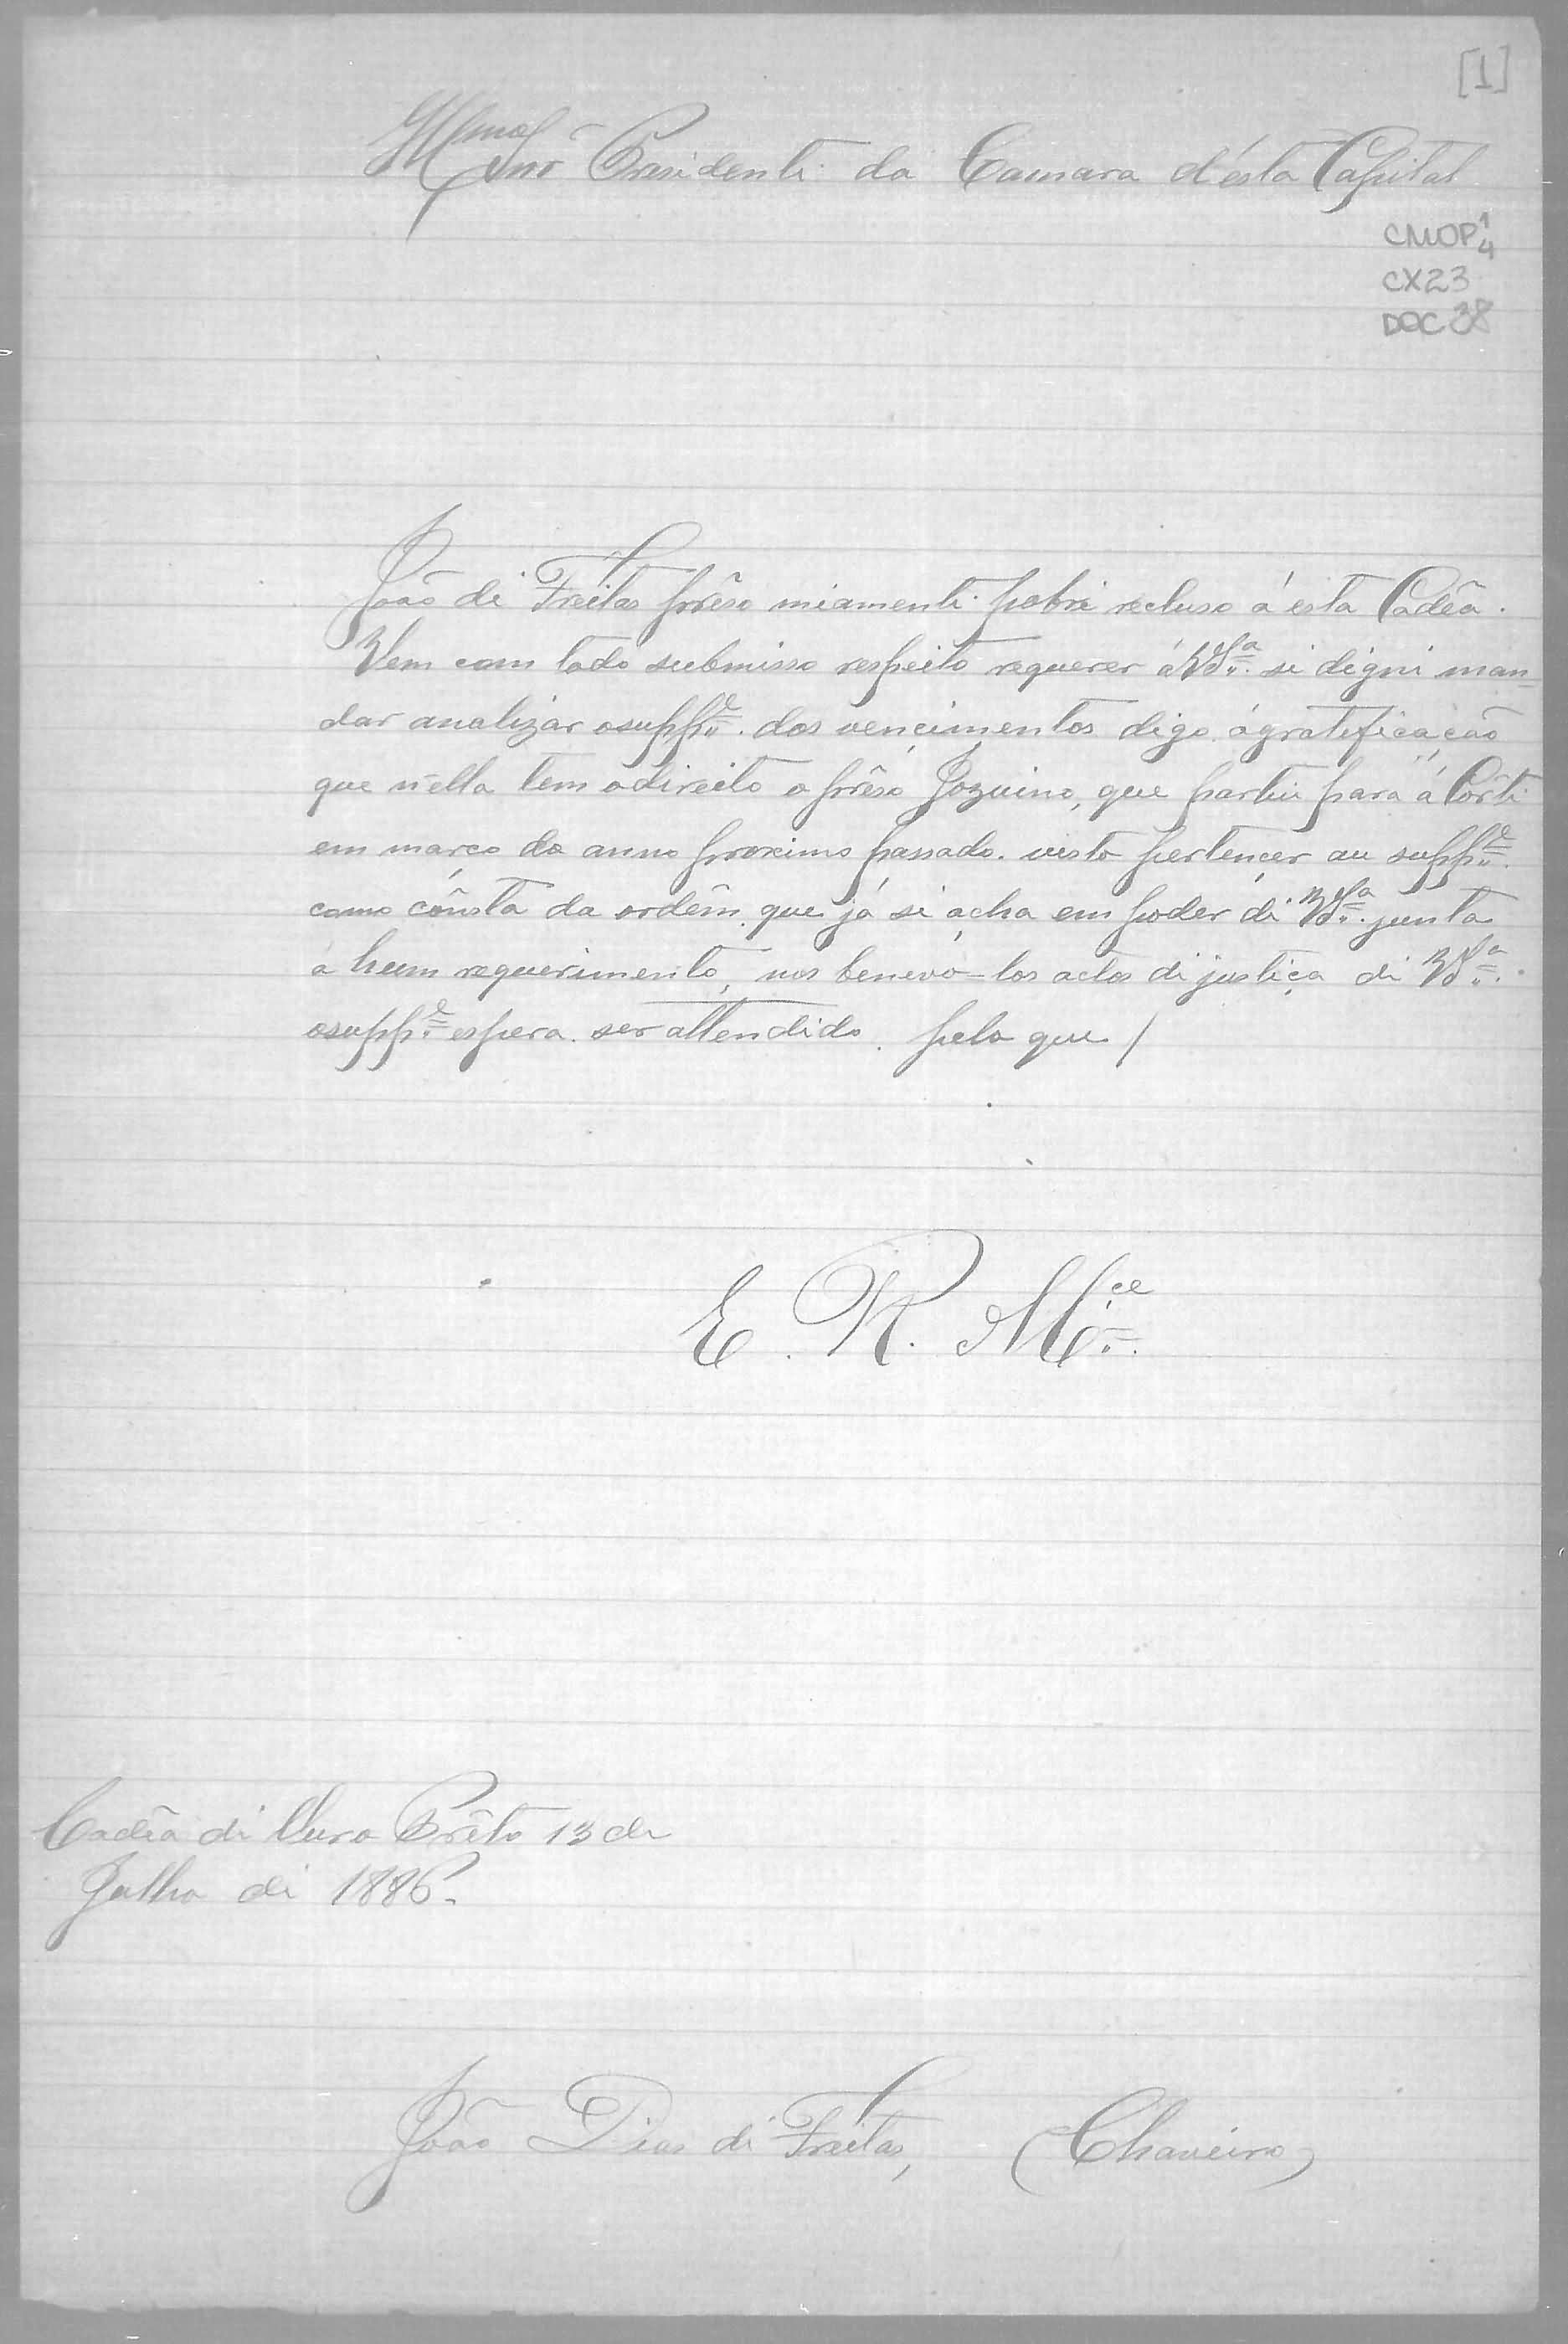 [1]
Illmo Snr Presidenti da Camara d'ésta Capital
CMOP 1/4
CX23
DOC 38
João di Freitas prêso miamenti pobri recluso á esta Cadêa.
Vem com todo submisso respeito requerer á VSª. si digni man=
dar analizar osuppe. dos vencimentos digo ágratificação
que n'ella tem odireito o prêso Jozuino, que partiu para á Côrti
em março do anno proximo passado. visto pertencer au suppe.
como cônsta da ordêm. que já si acha em poder di VSª. junta
á hum requerimento, nos benevó-los actos di justiça di VSª.
osuppe. espera. ser attendido. pelo que /
E. R. Mce.
Cadêa di Ouro Prêto 13 de
Julho di 1886.
João Dias di Freitas, (Chaveiro)